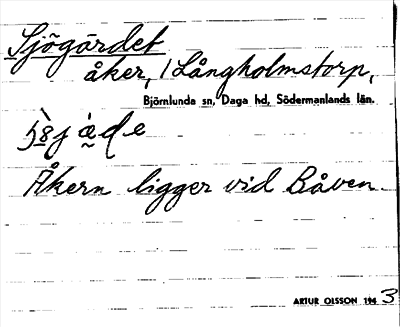 Sjögärdet
åker, / Långholmstorp,
Björnlunda sn, Daga hd, Södermanlands län.
Åkern ligger vid Båven.
ARTUR OLSSON 1943